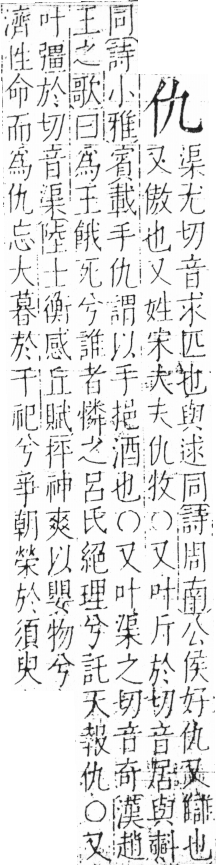 仇
渠尤切音求匹也與逑同詩周南公侯好仇又讎也
又傲也又姓宋大夫仇牧○又叶斤於切音居與㪺
同詩小雅賓載手仇謂以手挹酒也○又叶渠之切音奇漢趙
王之歌曰為王餓死兮誰者憐之呂氏絕理兮託天報仇○又
叶彊於切音渠陸士衡感丘賦抨神爽以嬰物兮
濟性命而為仇忘大暮於千祀兮爭朝榮於須臾